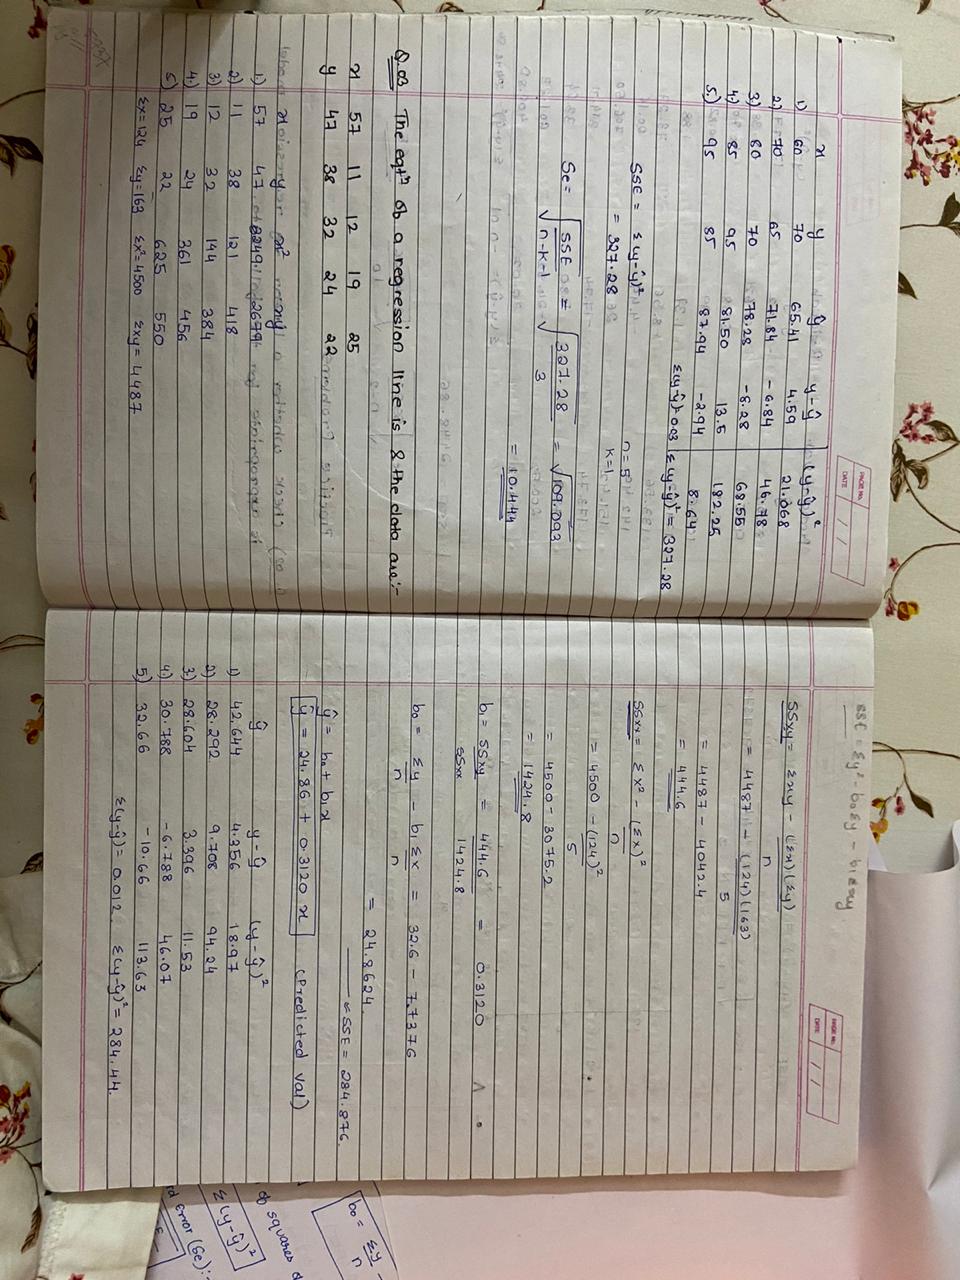 PAGE No.
DATE / /
x y ŷ y-ŷ (y-ŷ)²
1) 60 70 65.41 4.59 21.068
2) 70 65 71.84 -6.84 46.78
3) 80 70 78.28 -8.28 68.55
4) 85 95 81.50 13.5 182.25
5.) 95 85 87.94 -2.94 8.64
Σ(y-ŷ)=0.03 Σ(y-ŷ)² = 327.28
SSE = Σ(y-ŷ)²
= 327.28
n=5
k=1
Se = √(SSE / n-k-1) = √(327.28 / 3) = √109.093
= 10.444
Q.03 The eqtⁿ of a regression line is & the data are:-
x 57 11 12 19 25
y 47 38 32 24 22
x y x² xy
1) 57 47 3249 2679
2) 11 38 121 418
3) 12 32 144 384
4.) 19 24 361 456
5) 25 22 625 550
Σx=124 Σy=163 Σx²=4500 Σxy = 4487
SSE = Σy² - b₀Σy - b₁Σxy
PAGE No.
DATE / /
SSxy = Σxy - (Σx)(Σy) / n
= 4487 - (124)(163) / 5
= 4487 - 4042.4
= 444.6
SSxx = Σx² - (Σx)² / n
= 4500 - (124)² / 5
= 4500 - 3075.2
= 1424.8
b₁ = SSxy / SSxx = 444.6 / 1424.8 = 0.3120
b₀ = Σy / n - b₁ Σx / n = 32.6 - 7.7376
= 24.8624
SSE = 284.876.
ŷ = b₀ + b₁x
ŷ = 24.86 + 0.3120 x (Predicted val)
ŷ y-ŷ (y-ŷ)²
1) 42.644 4.356 18.97
2) 28.292 9.708 94.24
3) 28.604 3.396 11.53
4) 30.788 -6.788 46.07
5) 32.66 -10.66 113.63
Σ(y-ŷ) = 0.012 Σ(y-ŷ)² = 284.44.
b₀ = Σy / n -
of squares o
Σ(y-ŷ)²
rd error (Se):-